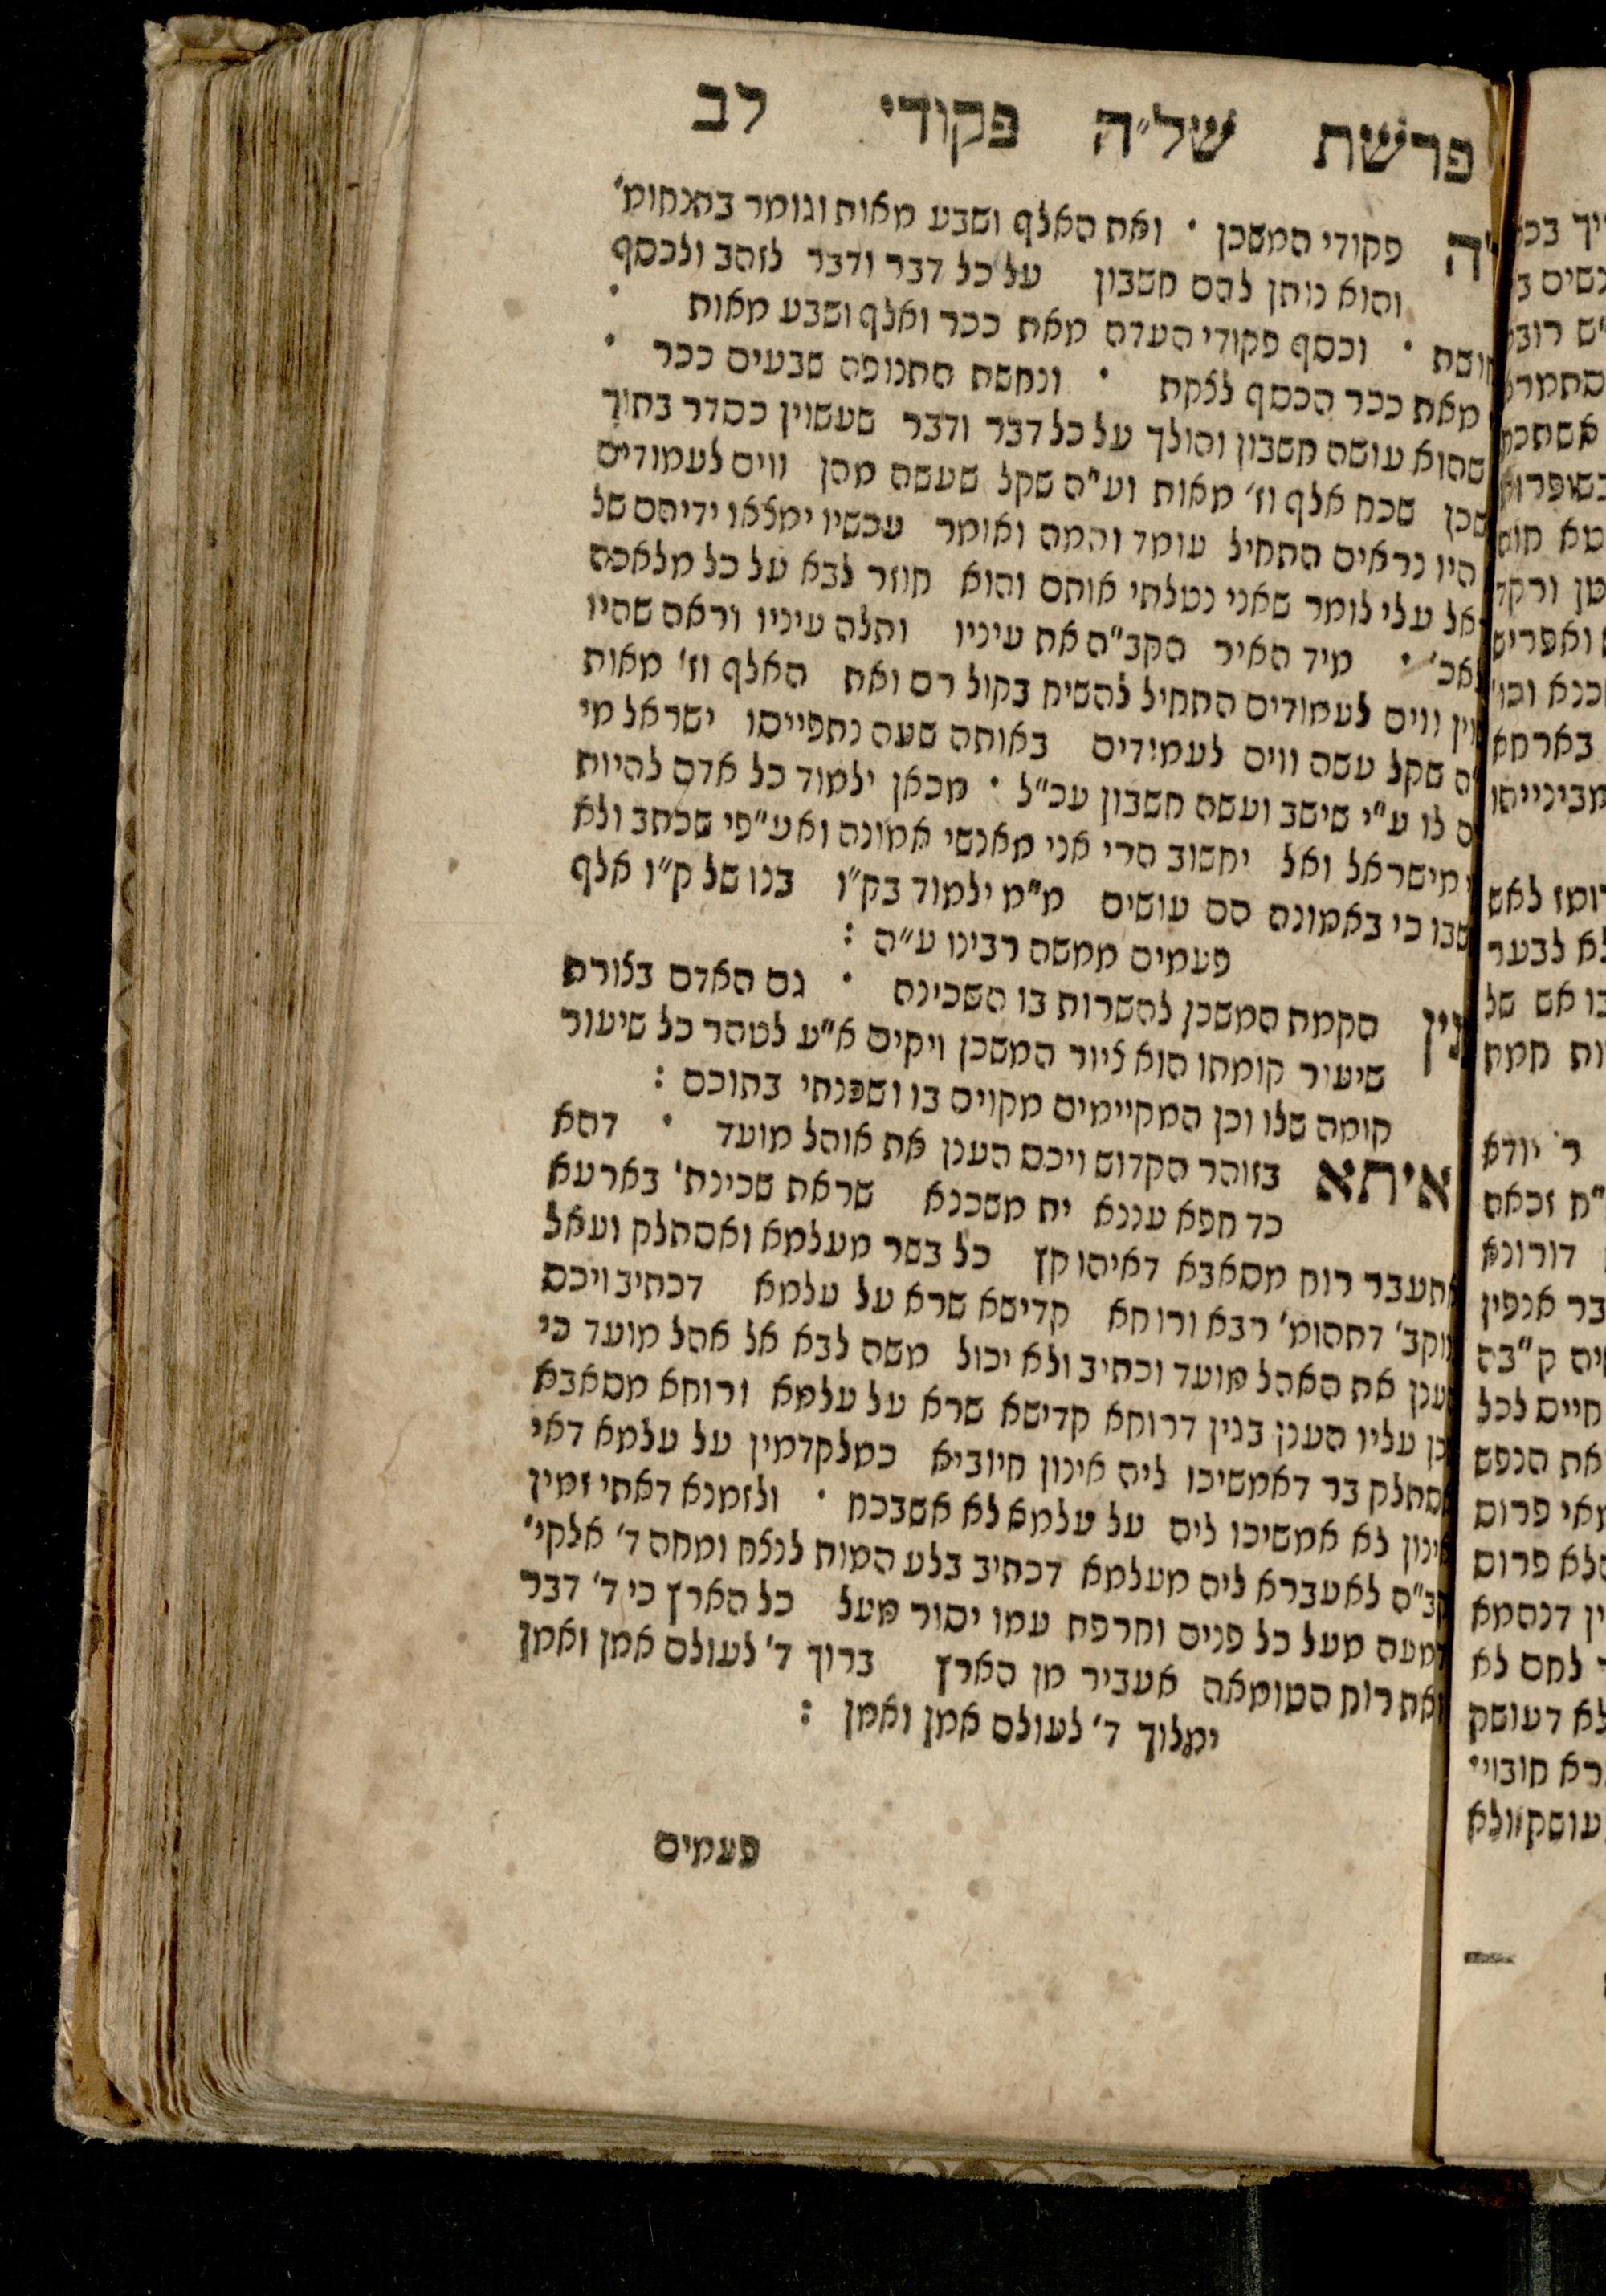 פרשת של״ה פקודי לב
פקודי המשכן · ואת האלף ושבע מאות וגומר בתנחומ׳
והוא נותן להם חשבון על כל דבר ודבר לזהב ולכסף
וכסף פקודי העדה מאת ככר ואלף ושבע מאות ·
מאת ככר הכסף לצקת · ונחשת התנופה שבעים ככר ·
שהוא עושה חשבון והולך על כל דבר ודבר שעשוין כסדר בתוך
שכח אלף וז׳ מאות וע״ה שקל שעשה מהן ווים לעמודים
היו נראים התחיל עומד ותמה ואומר עכשיו ימצאו ידיהם של
עלי לומר שאני נטלתי אותם והוא חוזר לבא על כל מלאכה
מיד האיר הקב״ה את עיניו ותלה עיניו וראה שהיו
ווים לעמודים התחיל להשיח בקול רם ואת האלף וז׳ מאות
שקל עשה ווים לעמידים באותה שעה נתפייסו ישראל מי
לו ע״י שישב ועשה חשבון עכ״ל · מכאן ילמוד כל אדם להיות
מישראל ואל יחשוב הרי אני מאנשי אמונה ואע״פי שכתב ולא
כי באמונה הם עושים מ״מ ילמוד בק״ו בנו של ק״ו אלף
פעמים ממשה רבינו ע״ה :
הקמת המשכן להשרות בו השכינה · גם האדם בצורת
שיעור קומתו הוא ציור המשכן ויקים א״ע לטהר כל שיעור
קומה שלו וכן המקיימים מקוים בו ושכנתי בתוכם :
איתא בזוהר הקדוש ויכס הענן את אוהל מועד · דהא
כד חפא עננא ית משכנא שראת שכינת׳ בארעא
אתעבר רוח מסאבא דאיהו קץ כל בשר מעלמא ואסתלק ועאל
דתהומ׳ רבא ורוחא קדישא שרא על עלמא דכתיב ויכס
הענן את האהל מועד וכתיב ולא יכול משה לבא אל אהל מועד כי
עליו הענן בגין דרוחא קדישא שרא על עלמא ורוחא מסאבא
אסתלק בר דאמשיכו ליה אינון חיוביא כמלקדמין על עלמא דאי
אינון לא אמשיכו ליה על עלמא לא אשבכח · ולזמנא דאתי זמין
קב״ה לאעברא ליה מעלמא דכתיב בלע המות לנצח ומחה ד׳ אלקי׳
דמעה מעל כל פנים וחרפת עמו יסור מעל כל הארץ כי ד׳ דבר
ואת רוח הטומאה אעביר מן הארץ ברוך ד׳ לעולם אמן ואמן
ימלוך ד׳ לעולם אמן ואמן :
פעמים